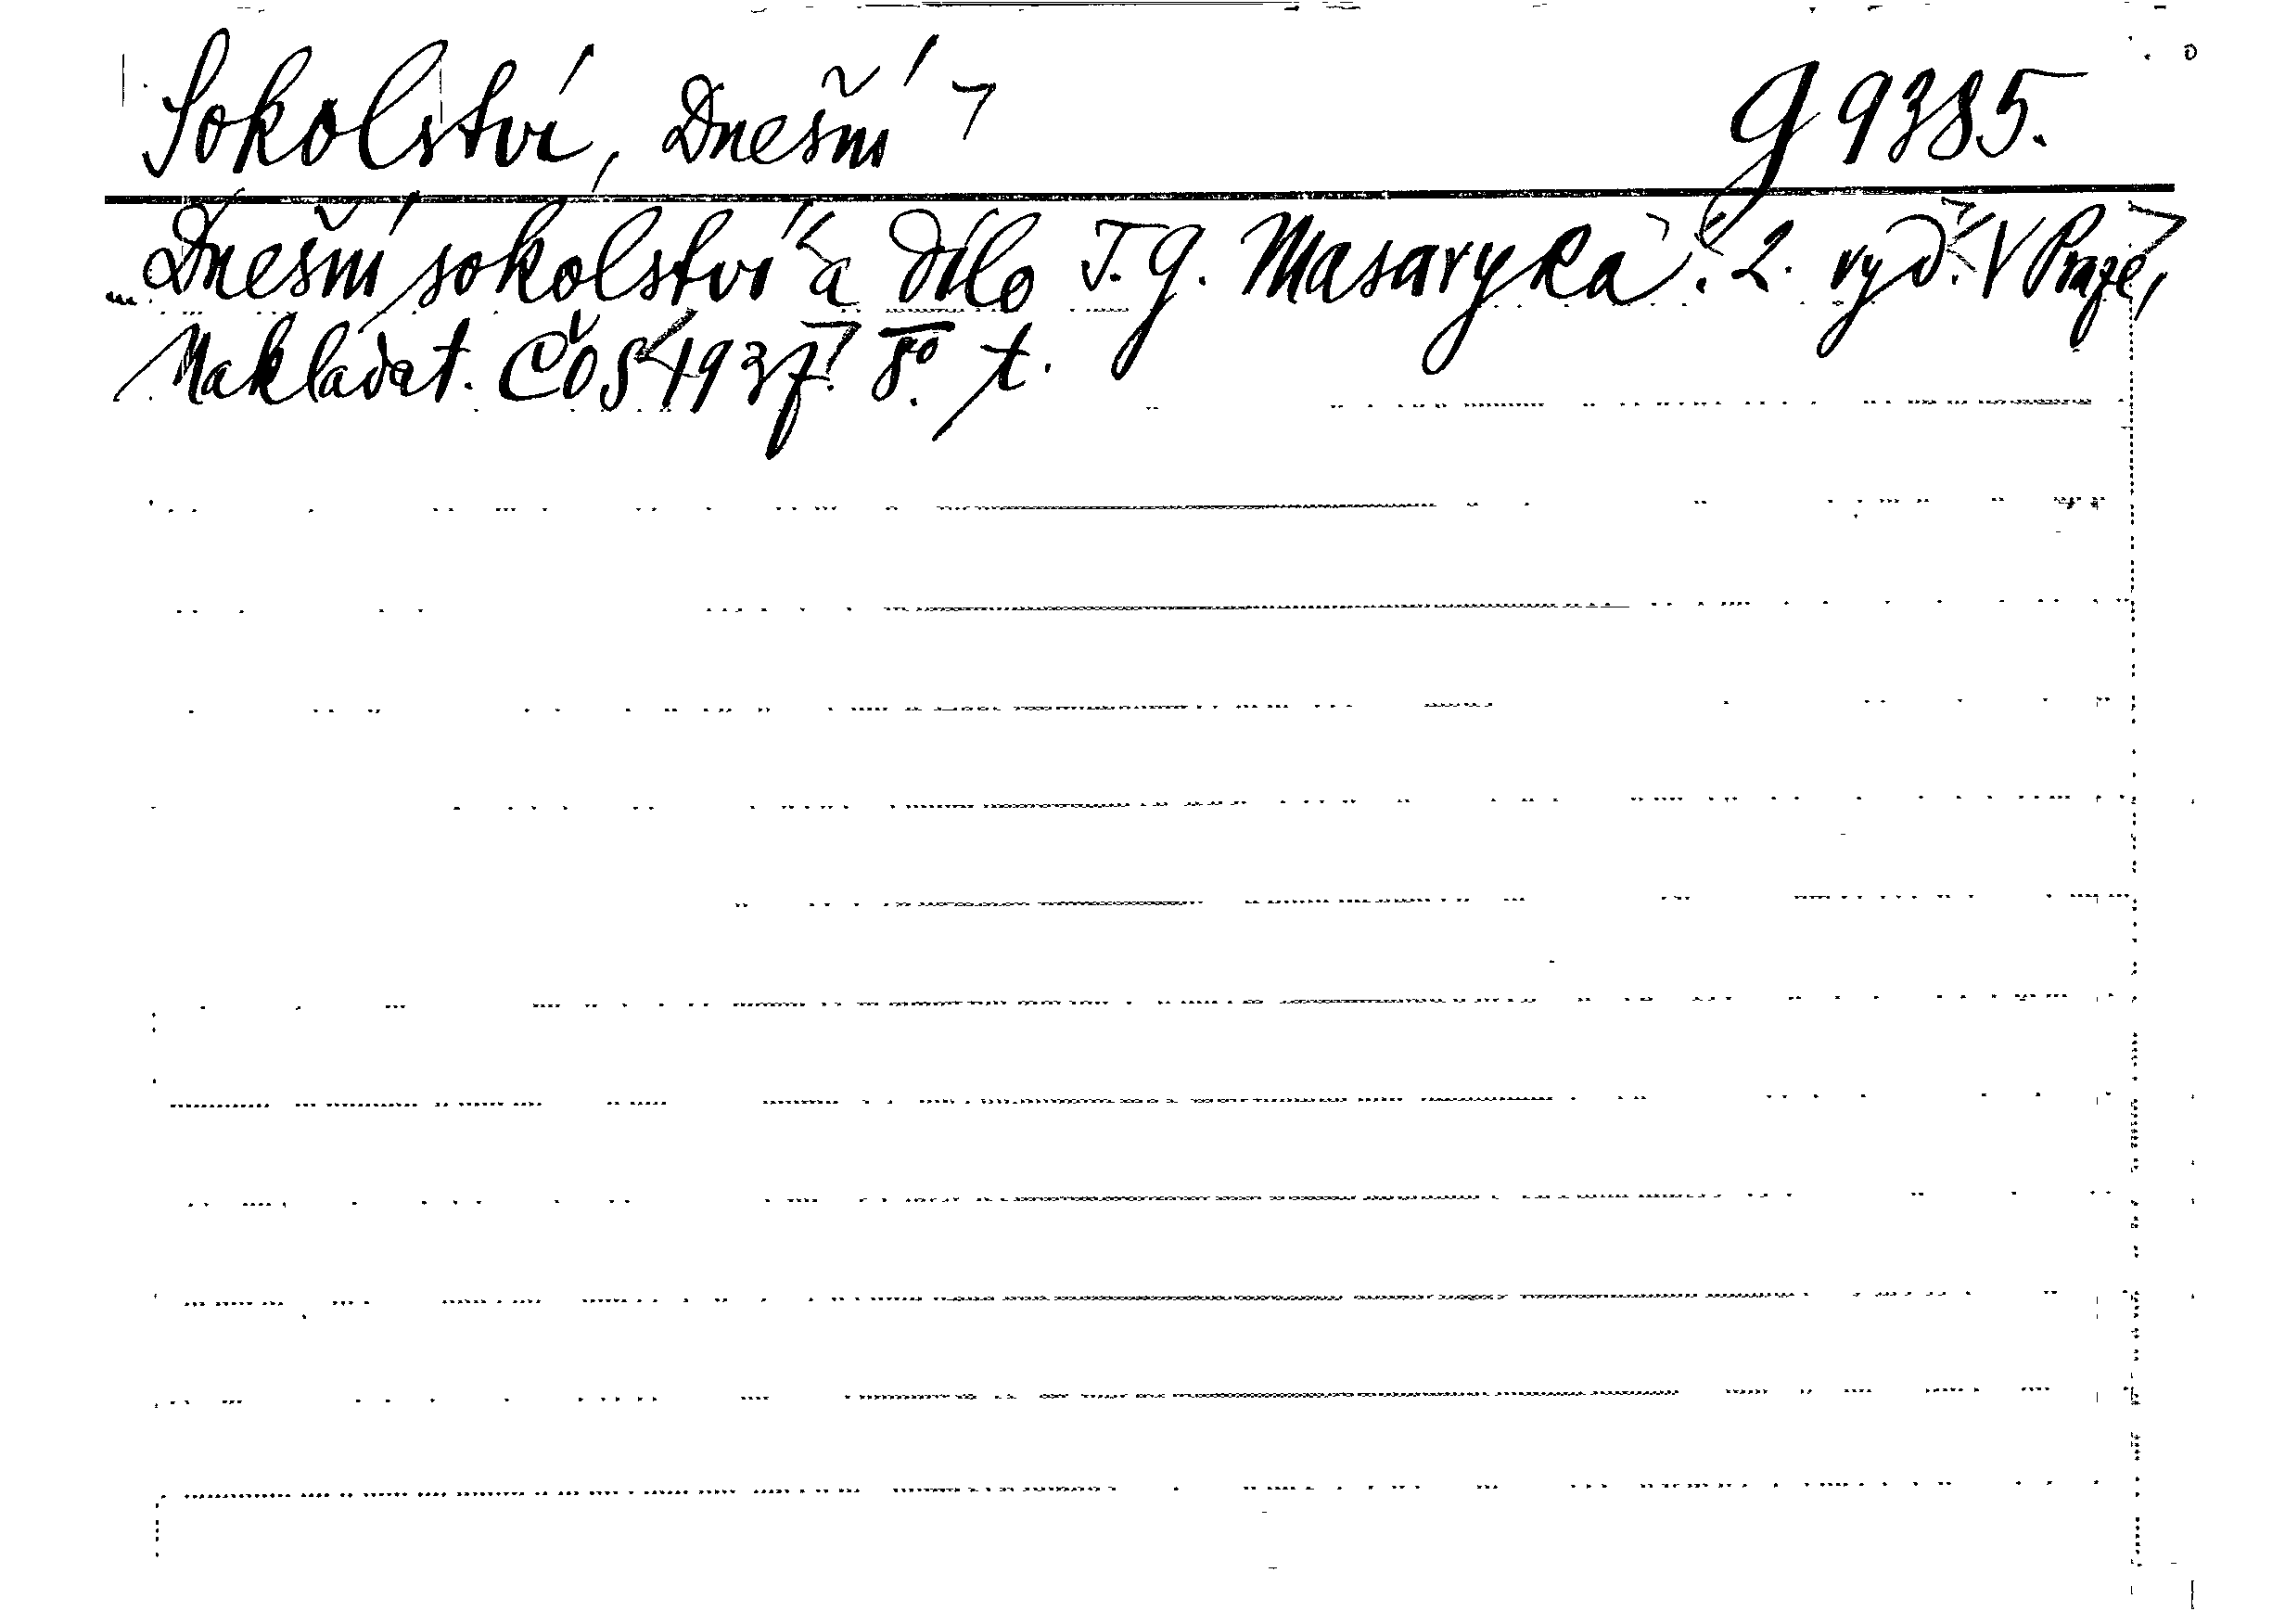 Sokolství, Dnešní ¬ G 9385.
Dnešní sokolství a dílo T. G. Masaryka. 2. vyd. V Praze,
Nakladat. ČOS 1937. 8°. t.